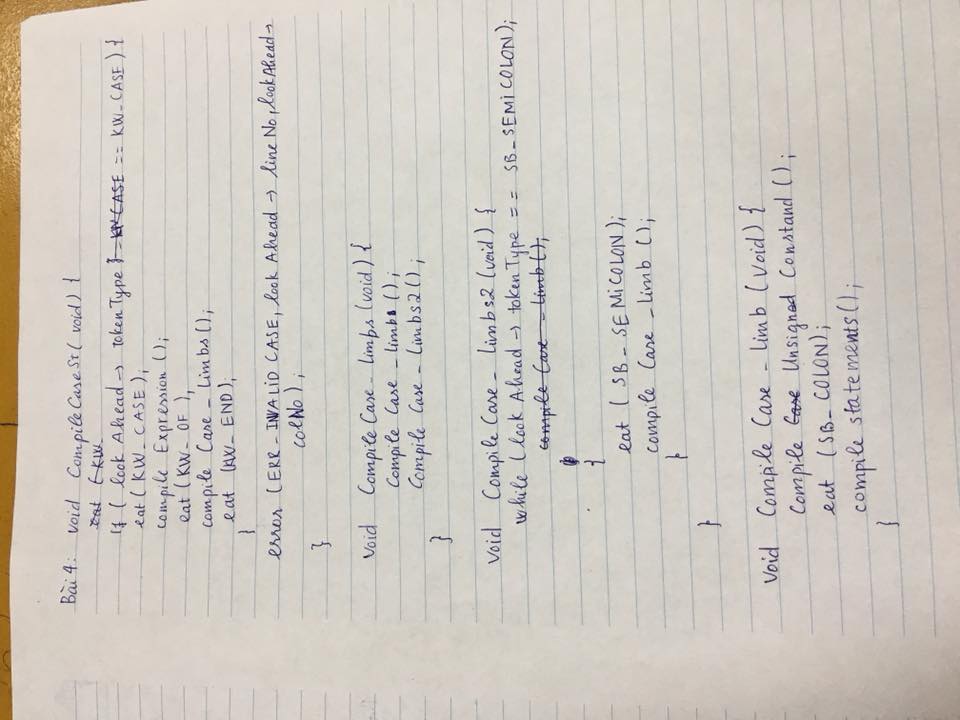 Bài 4: void CompileCaseSt (void) {
eat (KW
If (look Ahead → token Type } = KW CASE == KW_CASE) {
eat (KW_CASE);
compile Expression ();
eat (KW_OF);
compile Case_limbs ();
eat (KW_END);
}
error (ERR_INVALID CASE, look Ahead → line No, lookAhead →
colNo);
}
Void Compile Case_limbs (void) {
Compile Case_limb ();
Compile Case_limbs2 ();
}
Void Compile Case_limbs2 (void) {
while (look Ahead → tokenType == SB_SEMICOLON);
compile Case_limb ();
{
eat (SB_SEMICOLON);
compile Case_limb ();
}
}
Void Compile Case_limb (Void) {
Compile Case Unsigned Constand ();
eat (SB_COLON);
compile statements ();
}